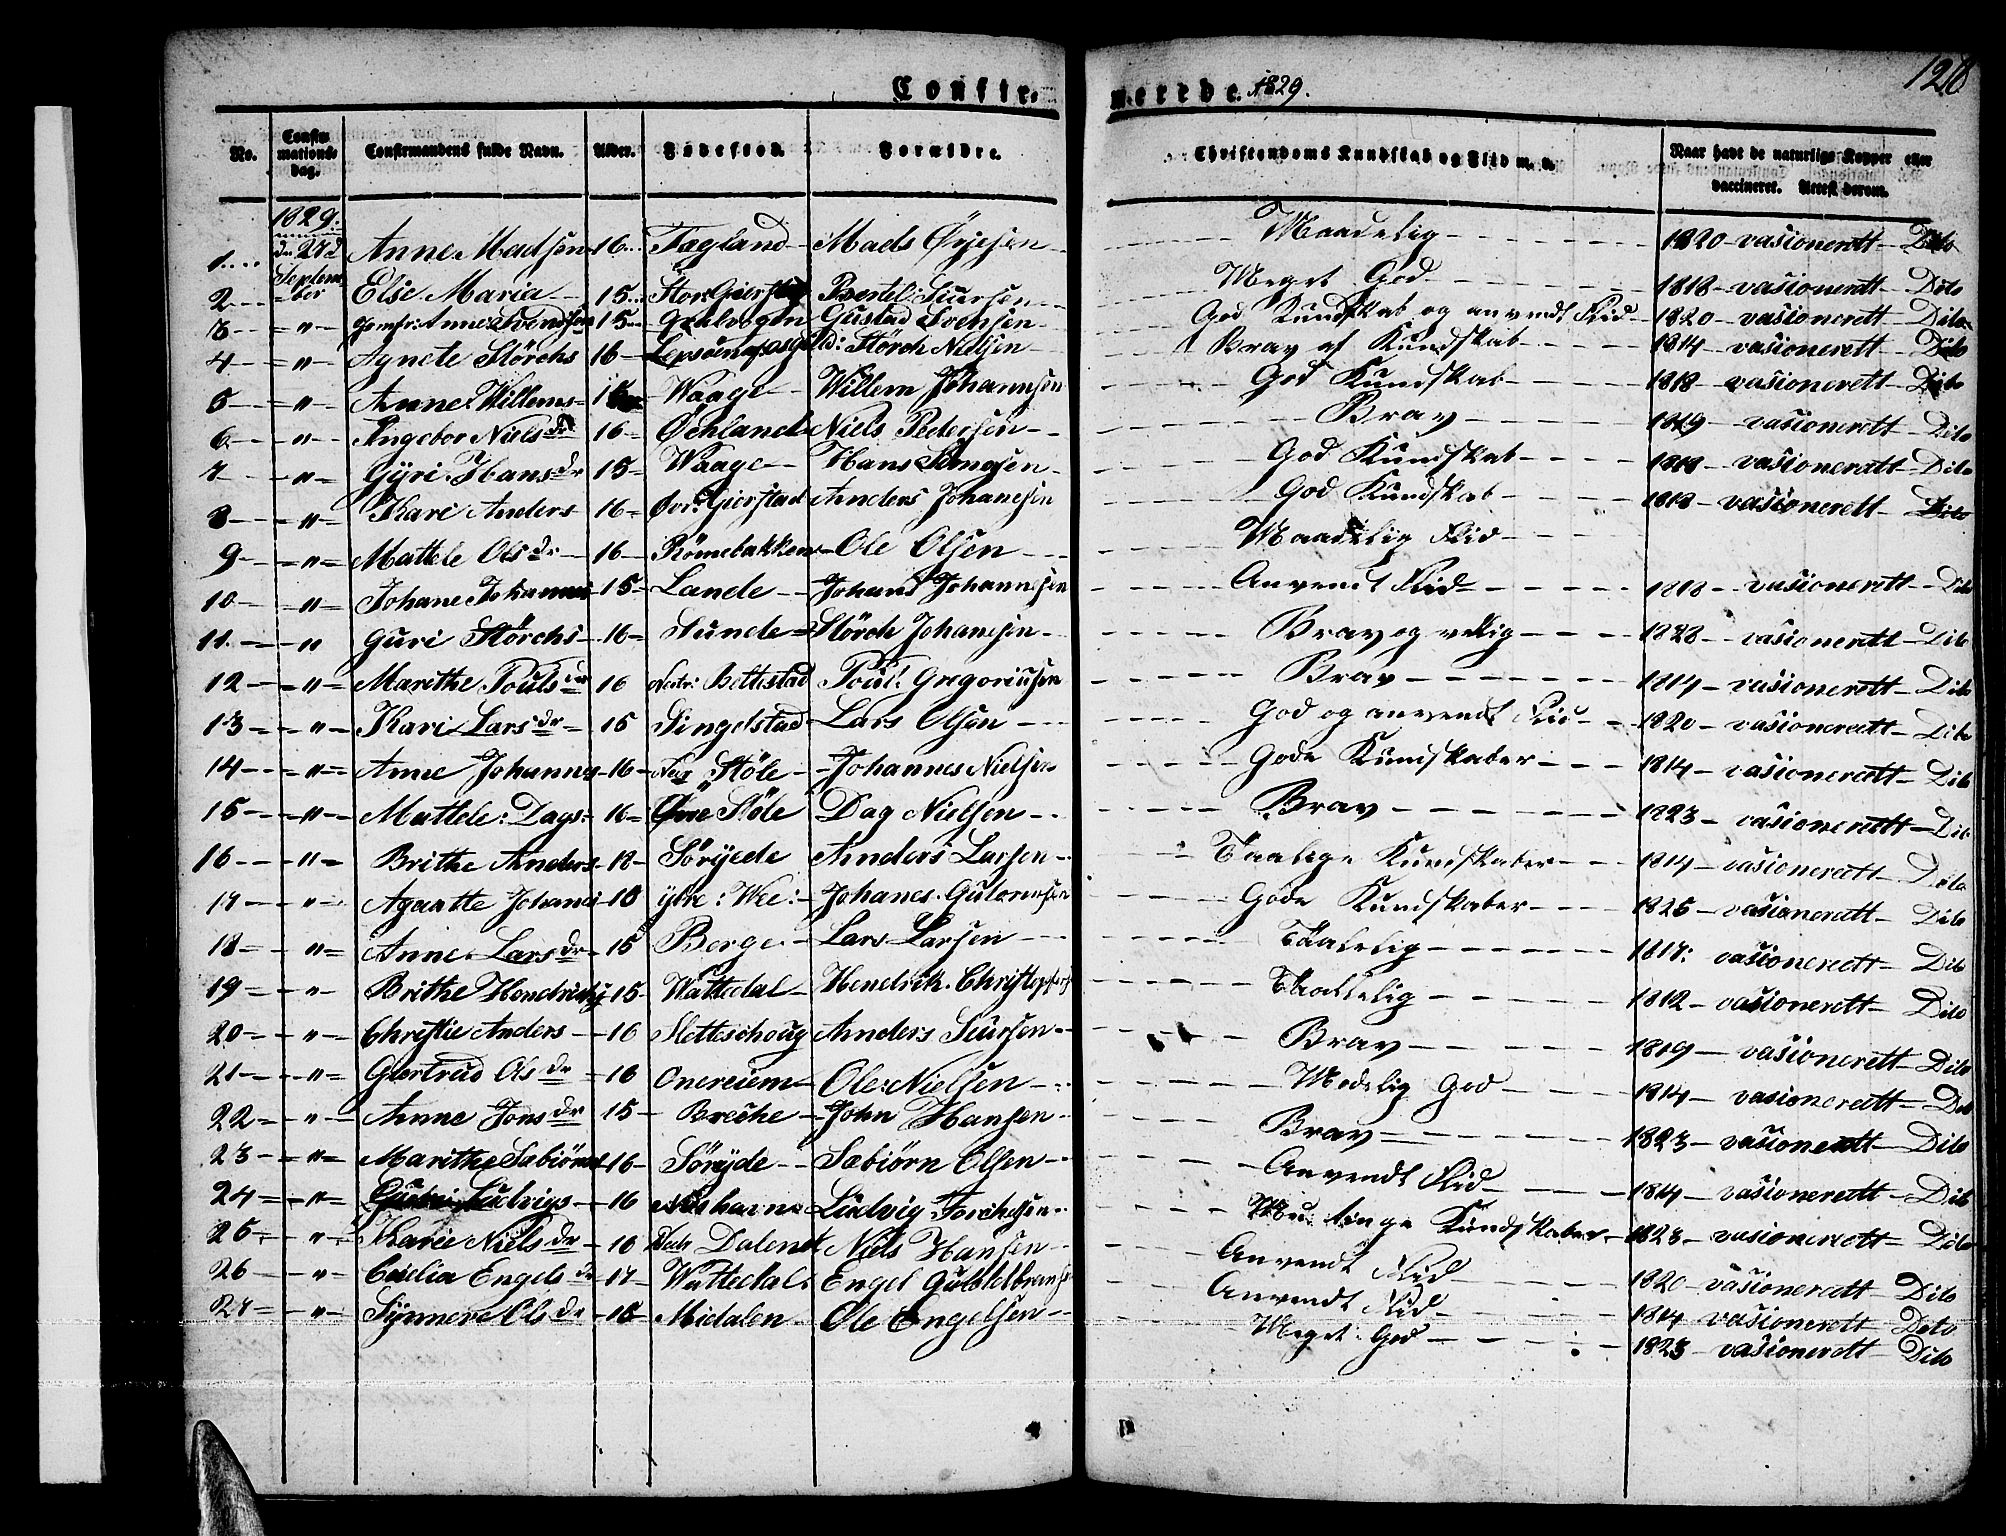 Confirmerede 1829.
128
No. Confirmations dag. Confirmandens fulde Navn. Alder. Fødested. Forældre. Christendoms Kundskab og Flid m. v. Naar havt de naturlige Kopper eller vaccineret. Attest derom.
1829.
1 dn 27d September Anne Madsen 16 Fægland Mads Maadelig 1820 vasionerett Dito
2 Else Maria 15 Bertel Siursen Meget God 1818 vasionerett Dito
3 " Jomfr: Anne Svendsen 15 Gustad Svensen God Kundskab og anvendt Flid 1820 vasionerett Dito
4 " Agnete Störchs 16 Störch Nielsen Brav af Kundskab 1814 vasionerett Dito
5 " Anne Willems Waage Willem Johannsen God Kundskab 1818 vasionerett Dito
6 " Ingebor Niels dr 16 Öchland Niels Pedersen Brav 1819 vasionerett Dito
7 " Gÿri Hans dr 15 Waage Hans God Kundskab 1818 vasionerett Dito
8 " Kari Anders 16 Øvr: Gierstad Anders Johanesen God Kundskab 1818 vasionerett Dito
9 " Mattele Ols dr 16 Römebakken Ole Olsen Maadelig Flid
10 " Johane Johannes 15 Lande Johans Johannesen Anvendt Flid 1818 vasionerett Dito
11 " Guri Störchs 16 Sunde Störch Johanesen Brav og 1828 vasionerett Dito
12 " Marithe Pouls dr 16 Nedr: Bolhstad Poul Gregoriusen Brav 1814 vasionerett Dito
13 " Kari Lars dr 15 Singelstad Lars Olsen God og anvendt Flid 1820 vasionerett Dito
14 " Anne Johannes 16 Nedr Stöle Johannes Nielsen Gode Kundskaber 1814 vasionerett Dito
15 " Mattele: Dags: 16 Öv̈re Stöle Dag Nielsen Brav 1823 vasionerett Dito
16 " Brithe Anders 18 Sörÿede Anders Larsen Taalige Kundskaber 1814 vasionerett Dito
17 " Agaatte Johanes 18 ÿtre: Wee: Johanes Gutormsen Gode Kundskaber 1825 vasionerett Dito
18 " Anne Lars dr 15 Berge Lars Larsen Taalelig 1817: vasionerett Dito
19 " Brithe Hendrichs 15 Wattedal Hendrich Taallelig 1812 vasionerett Dito
20 " Christie Anders 16 Sletteschoug Anders Siursen Brav 1819 vasionerett Dito
21 " Giertrud Ols dr 16 Onereiem Ole: Nielsen Modelig God 1814 vasionerett Dito
22 " Anne Jons dr 15 Breche John Hansen Brav 1823 vasionerett Dito
23 " Marithe Sæbiörns 16 Sörÿde Sæbiörn Olsen Anvendt Flid 1814 vasionerett Dito
24 " Ludvigs 16 Ludvig ringe Kundskaber 1823 vasionerett Dito
25 " Karie Niels dr 16 Dalene Niels Hansen Anvendt Flid 1820 vasionerett Dito
26 " Cicilia Engels dr 17 Wattedal Engel Anvendt Flid 1814 vasionerett Dito
27 " Sÿnneve Ols dr 16 Midalen Ole Engelsen Meget God 1823 vasionerett Dito